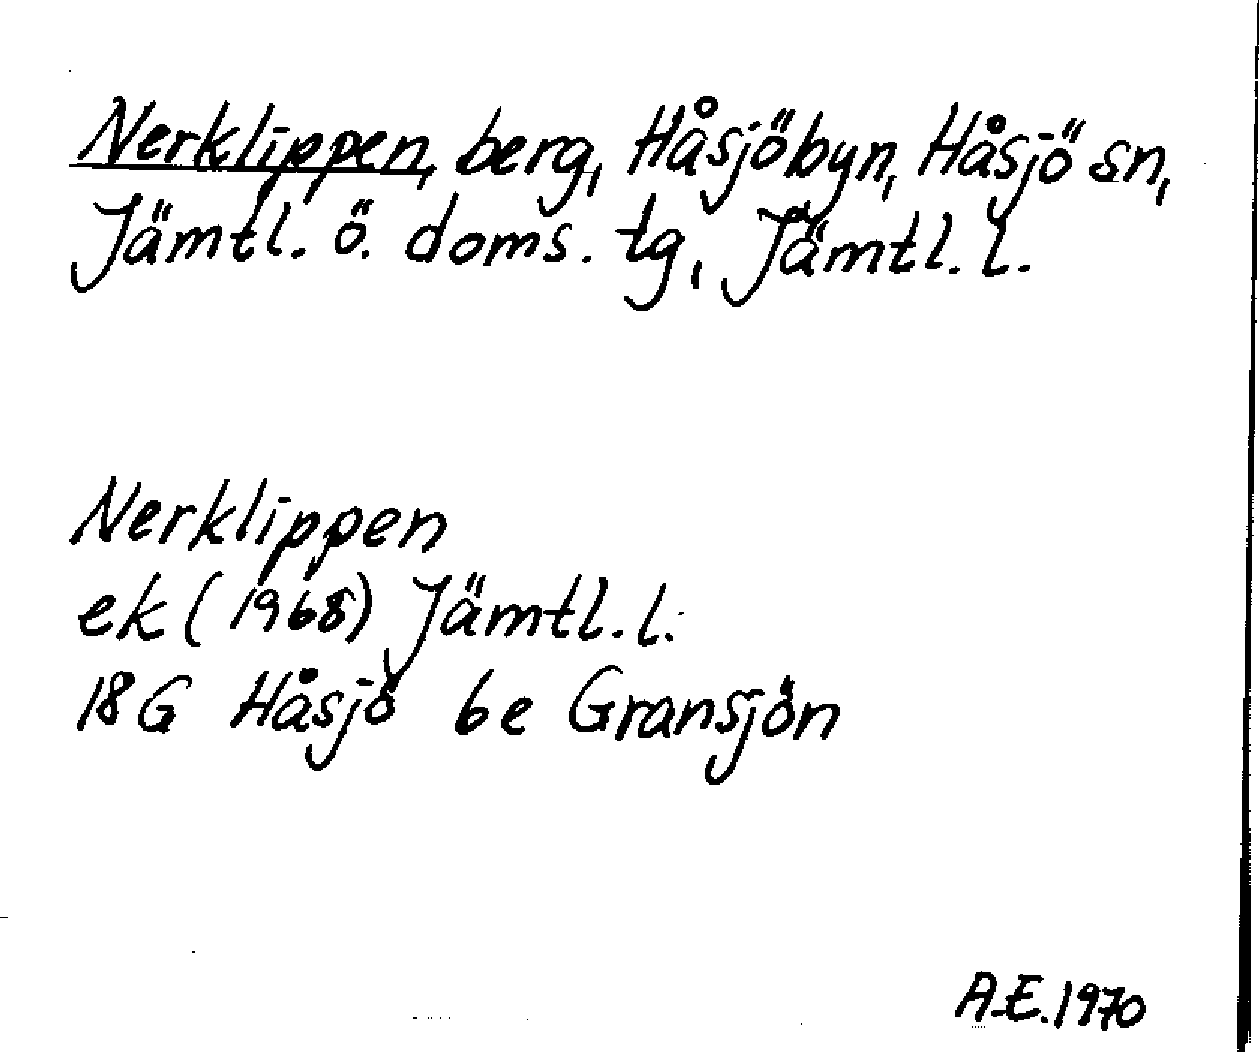 Nerklippen, berg, Håsjöbyn, Håsjö sn,
Jämtl. ö. doms. tg, Jämtl. l.
Nerklippen
ek (1968) Jämtl. l.
18G Håsjö be Gransjön
A.E. 1970